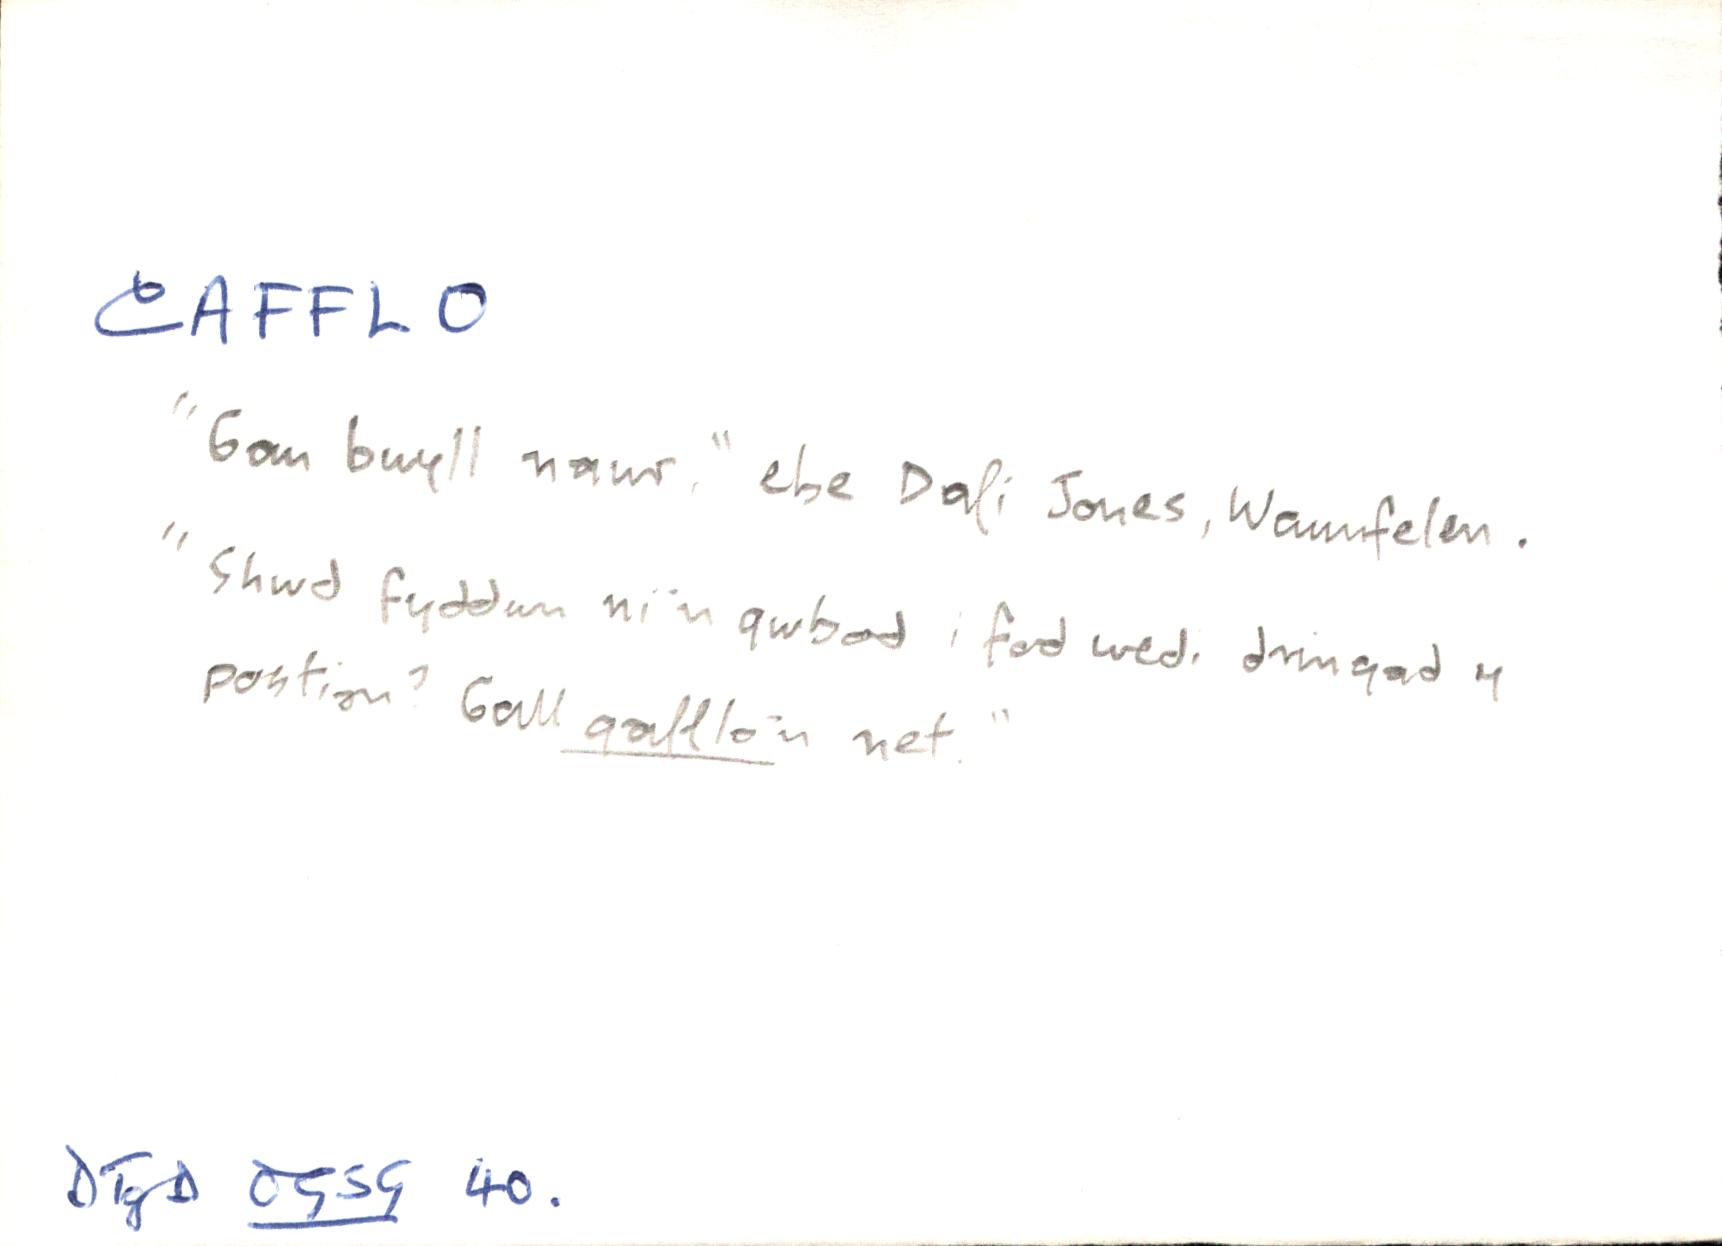 CAFFLO
"Gan bwyll nawr," ebe Dafi Jones, Waunfelen.
"Shwd fyddwn ni'n gwbod i fod wedi dringad y
postion? Gall gafflo'n net."
DTgD OGSG 40.